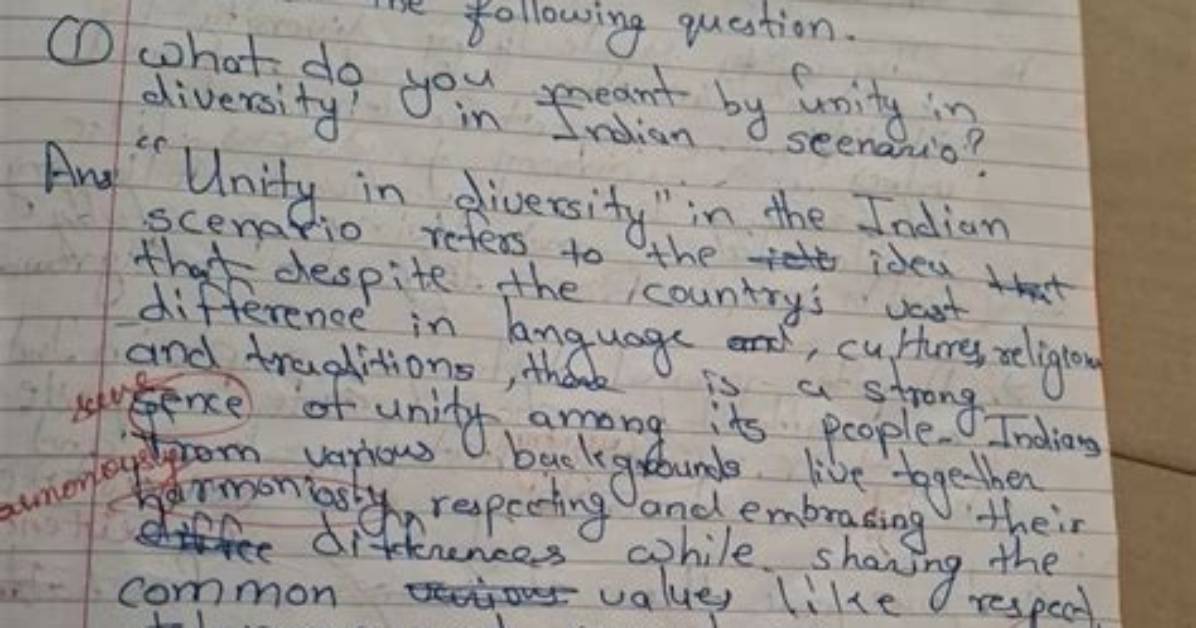 the following question.
① what do you meant by 'unity in
diversity' in Indian seenario?
Ans "Unity in diversity" in the Indian
scenario refers to the idea that
that despite the country's vast
difference in language and, cultures, religions
and traditions, there is a strong
sense
sence of unity among its people. Indians
from various backgrounds live together
harmoniously
harmoniosty, respecting and embrasing their
diffee differences while sharing the
common various values like respect,